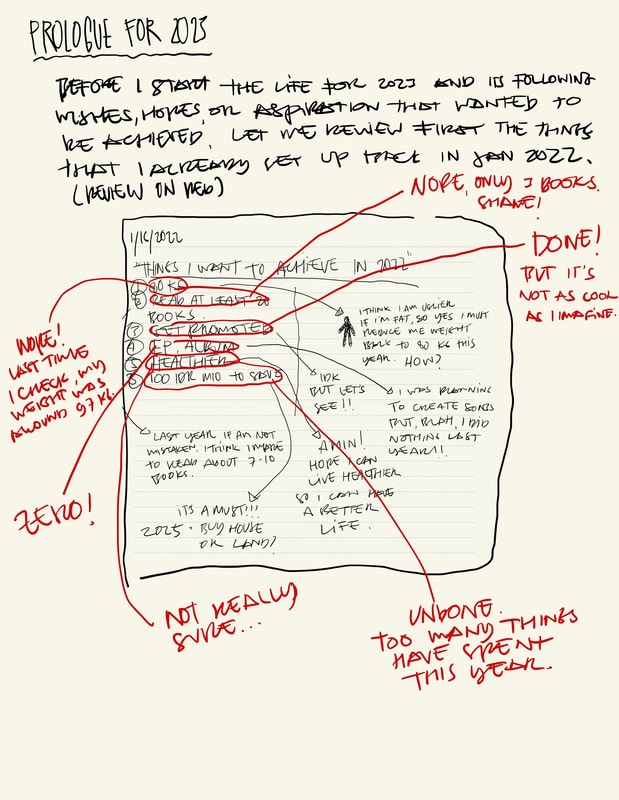 PROLOGUE FOR 2023
BEFORE I START THE LIFE FOR 2023 AND ITS FOLLOWING
WISHES, HOPES, OR ASPIRATION THAT WANTED TO
BE ACHIEVED, LET ME REVIEW FIRST THE THINGS
THAT I ALREADY SET UP BACK IN JAN 2022.
(REVIEW ON RED)
NOPE, ONLY 3 BOOKS.
SHAME!
DONE!
BUT IT'S
NOT AS COOL
AS I IMAGINE.
1/16/2022
"THINGS I WANT TO ACHIEVE IN 2022"
1 80 KG
2 READ AT LEAST 20
BOOKS.
3 GET PROMOTED
4 EP, ALBUM
5 HEALTHIER
6 100 IDR MIO TO SAVE
I THINK I AM UGLIER
IF I'M FAT, SO YES I MUST
REDUCE ME WEIGHT
BACK TO 80 KG THIS
YEAR. HOW?
IDK
BUT LET'S
SEE!!
I WAS PLANNING
TO CREATE SONGS
BUT, BLAH, I DID
NOTHING LAST
YEAR!!
LAST YEAR, IF AM NOT
MISTAKEN, I THINK I MADE
TO READ ABOUT 7-10
BOOKS.
AMIN!
HOPE I CAN
LIVE HEALTHIER
SO I CAN HAVE
A BETTER
LIFE.
ITS A MUST!!!
2025 - BUY HOUSE
OR LAND?
NOPE!
LAST TIME
I CHECK, MY
WEIGHT WAS
AROUND 97 KG.
ZERO!
NOT REALLY
SURE...
UNDONE.
TOO MANY THINGS
HAVE SPENT
THIS YEAR.